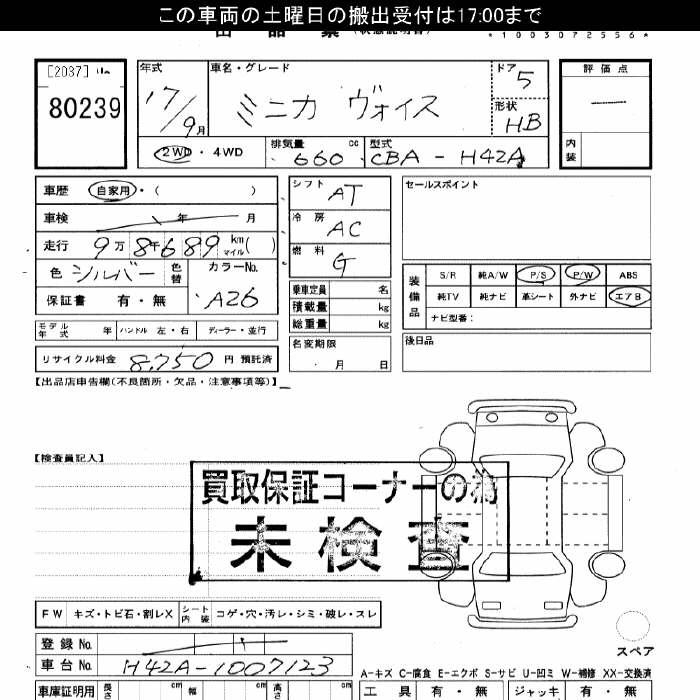 この車両の土曜日の搬出受付は17:00まで
*1003072556*
[2037]
80239
年式 17/9月
車名・グレード ミニカ ヴォイス
ドア 5
形状 HB
評価点 —
内装
2WD・4WD
排気量 660 cc
型式 CBA-H42A
車歴 自家用・( )
車検 年 月
走行 9万8千689 km マイル( )
色 シルバー 色替
カラーNo. A26
保証書 有・無
シフト AT
冷房 AC
燃料 G
乗車定員 名
積載量 kg
総重量 kg
セールスポイント
装備品
S/R 純A/W P/S P/W ABS
純TV 純ナビ 革シート 外ナビ エアB
ナビ型番:
モデル年式 年 ハンドル 左・右 ディーラー・並行
リサイクル料金 8,750 円 預託済
名変期限 月 日
後日品
【出品店申告欄(不良箇所・欠品・注意事項等)】
【検査員記入】
買取保証コーナーの為
未検査
FW キズ・トビ石・割レX シート内装 コゲ・穴・汚レ・シミ・破レ・スレ
登録No.
車台No. H42A-1007123
スペア
A-キズ C-腐食 E-エクボ S-サビ U-凹ミ W-補修 XX-交換済
車庫証明用 長さ cm 幅 cm 高さ cm
工具 有・無 ジャッキ 有・無